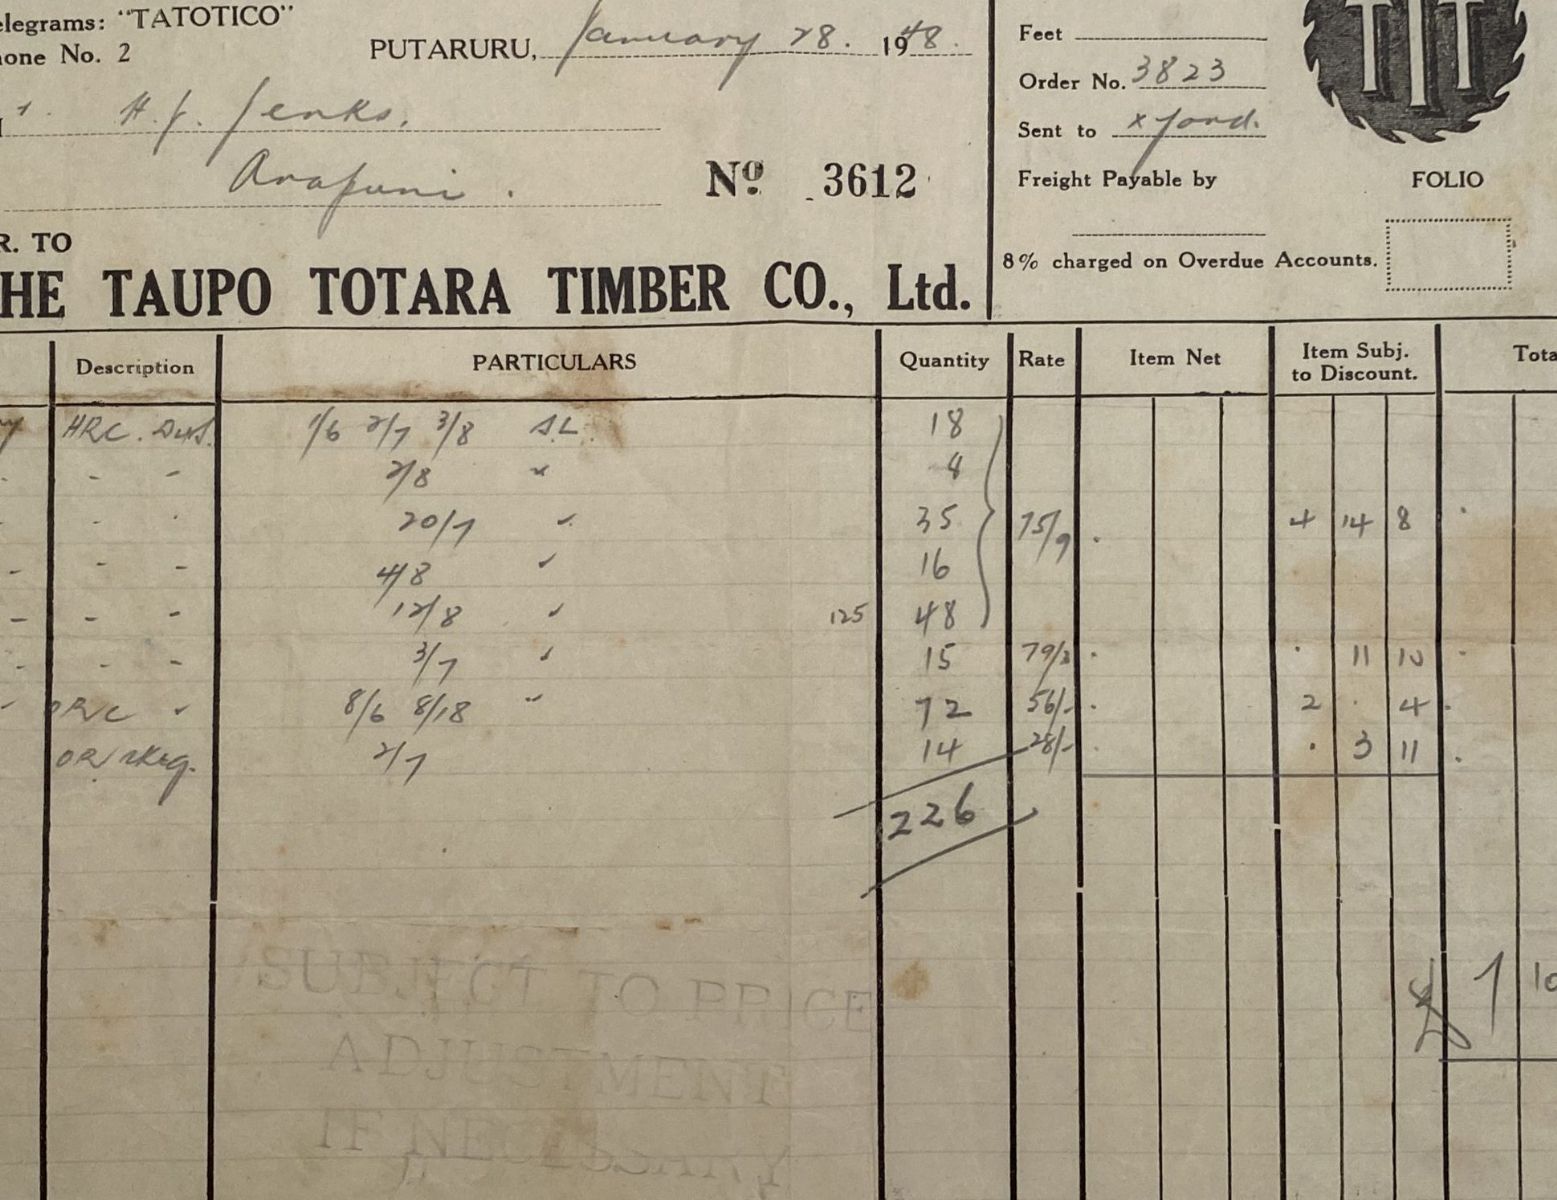 elegrams: "TATOTICO"
one No. 2
PUTARURU, January 28. 1948.
H. J. Jenks.
Arapuni.
No. 3612
R. TO
HE TAUPO TOTARA TIMBER CO., Ltd.
Feet
Order No. 3823
Sent to x yard.
Freight Payable by
8% charged on Overdue Accounts.
TTT
FOLIO
Description PARTICULARS Quantity Rate Item Net Item Subj. to Discount. Tota
HRC. 1/6 2/7 3/8 S.L. 18
- - 2/8 " 4
- - 20/7 " 35 75/9 4 14 8
- - - 4/8 " 16
- - - 12/8 " 125 48
- - - 3/7 " 15 79/3 11 10
ORC " 8/6 8/18 " 72 56/- 2 . 4
OR 2/7 14 28/- . 3 11
226
£ 7 10
SUBJECT TO PRICE
ADJUSTMENT
IF NECESSARY